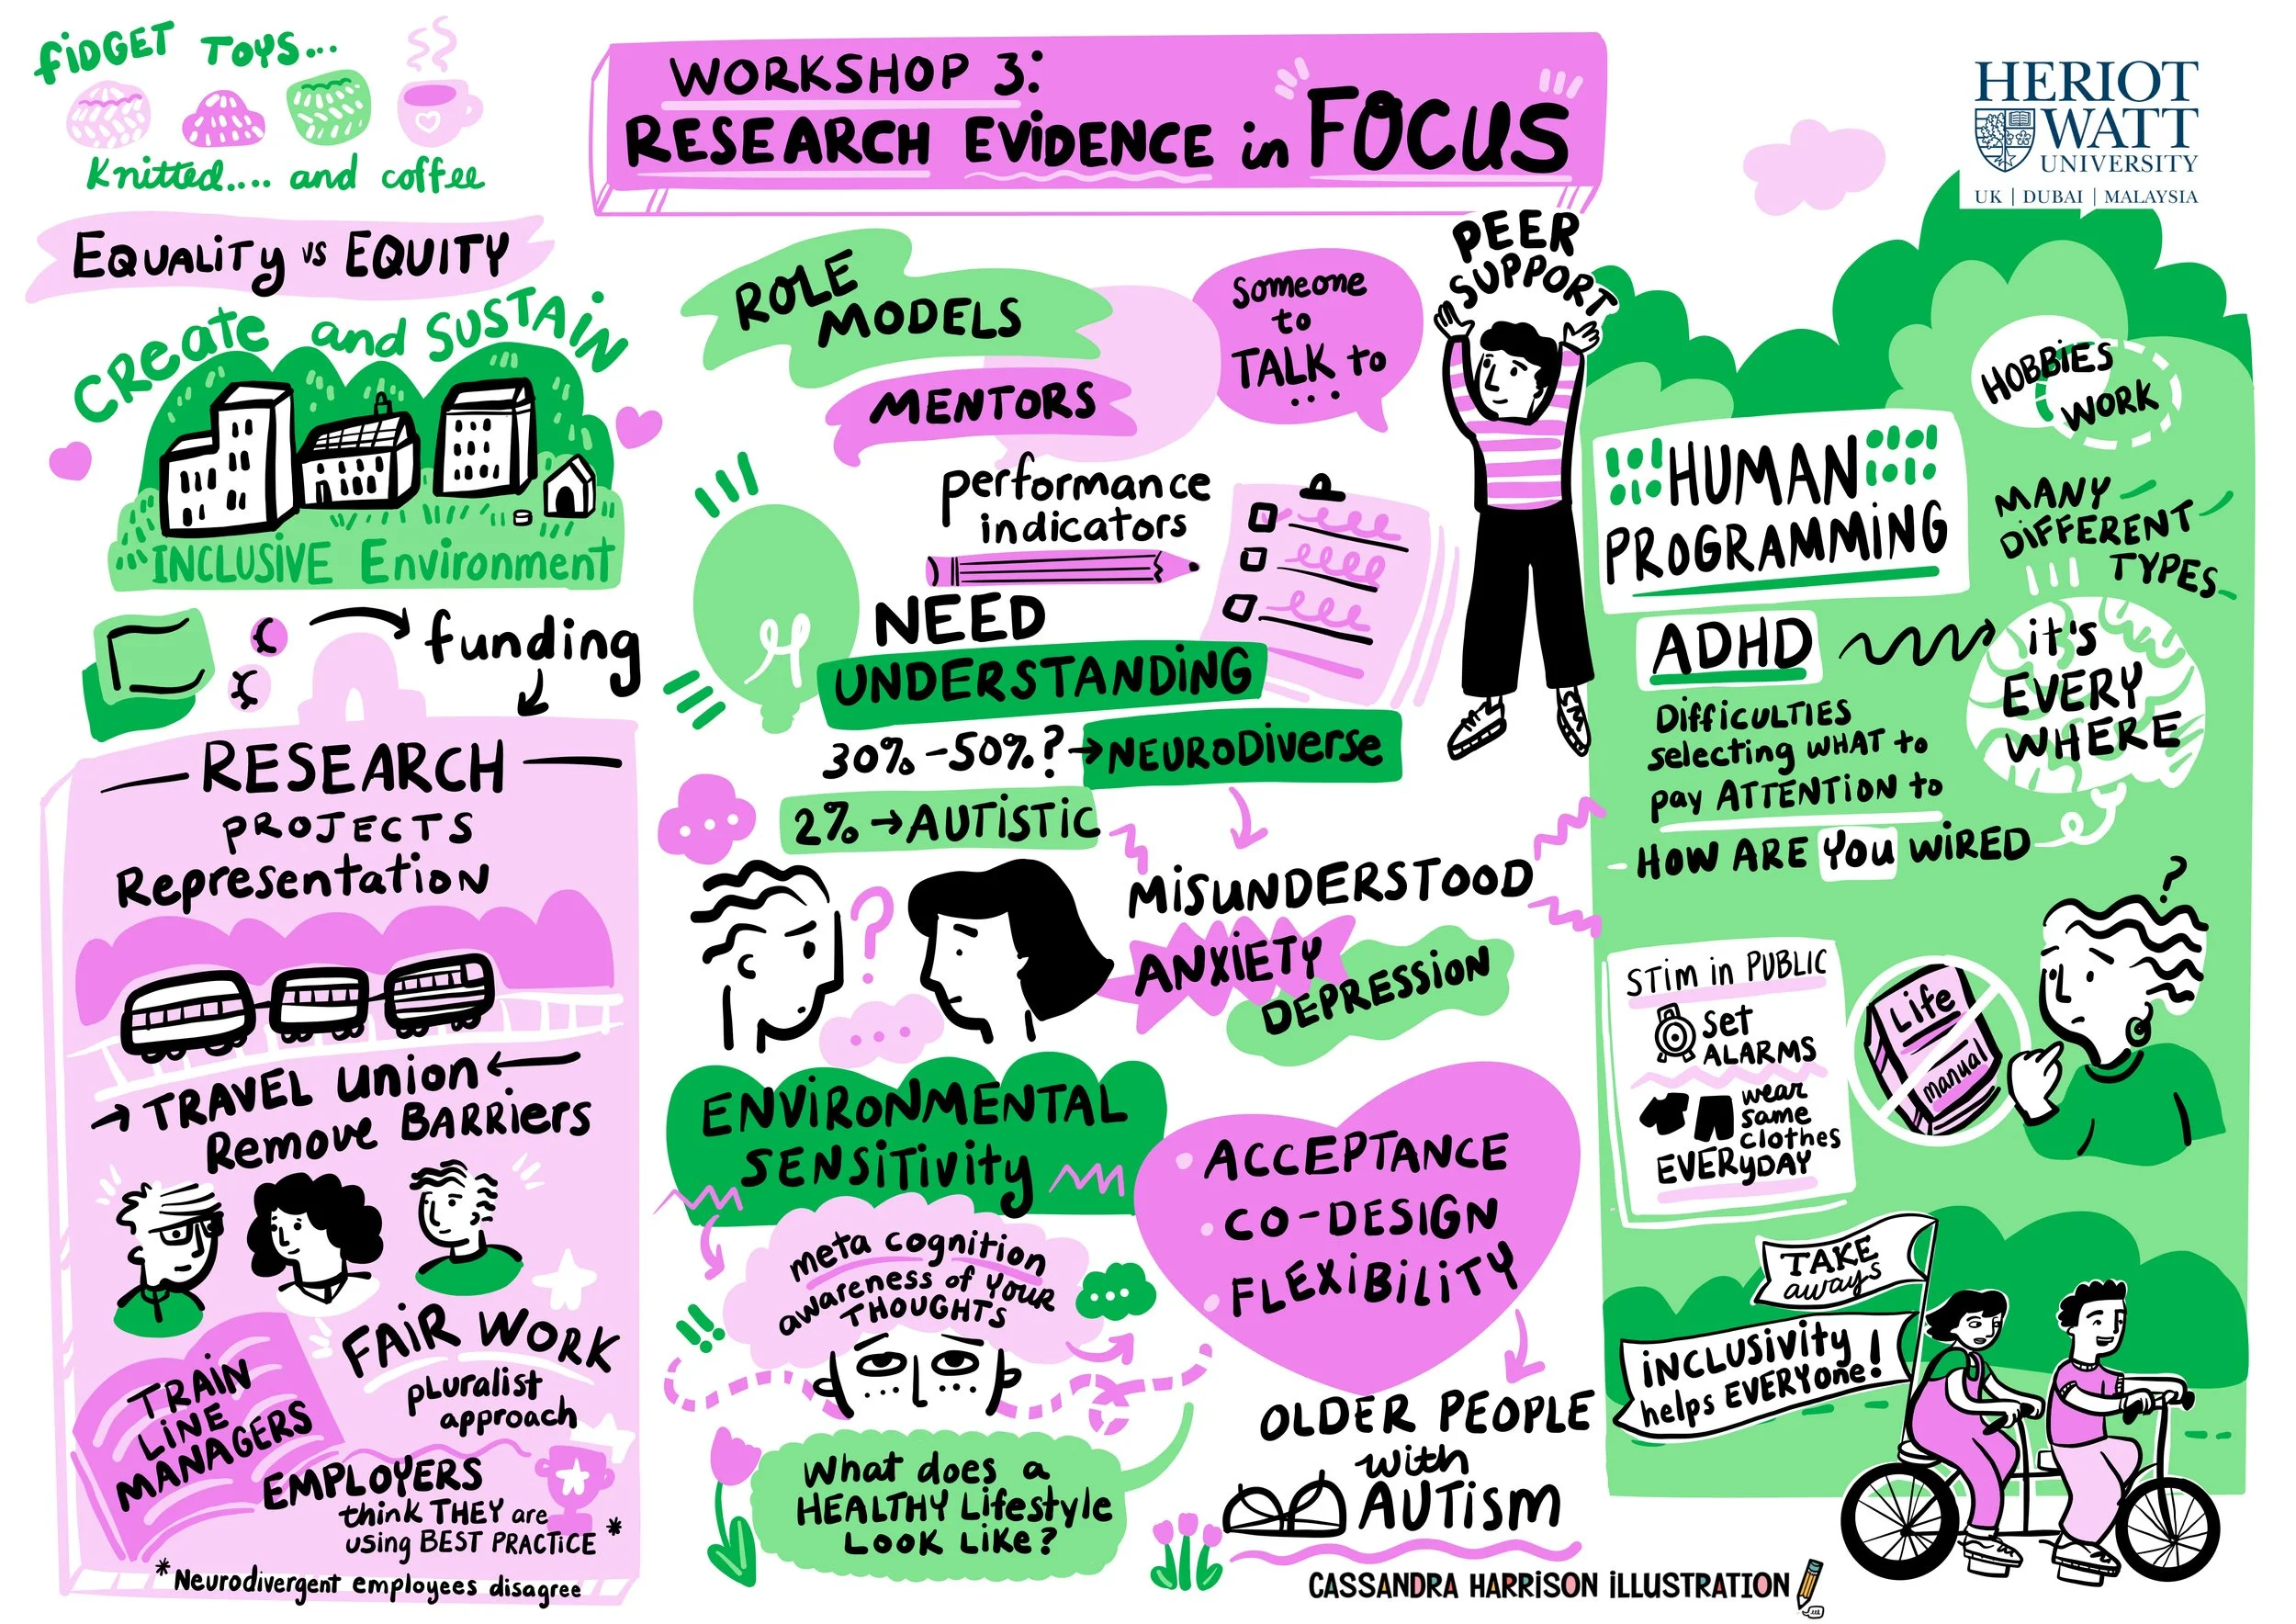 FIDGET TOYS...
Knitted.... and coffee
EQUALITY VS EQUITY
CREATE and SUSTAIN
INCLUSIVE Environment
funding
RESEARCH
PROJECTS
Representation
TRAVEL Union
Remove BARRIERS
FAIR WORK
PLURALIST
approach
TRAIN
LINE
MANAGERS
EMPLOYERS
think THEY are
using BEST PRACTICE *
*Neurodivergent employees disagree
WORKSHOP 3:
RESEARCH EVIDENCE in FOCUS
ROLE
MODELS
MENTORS
Someone
to
TALK to
...
PEER
SUPPORT
performance
indicators
NEED
UNDERSTANDING
30% -50%? → NEURODIVERSE
2% → AUTISTIC
MISUNDERSTOOD
ANXIETY
DEPRESSION
ENVIRONMENTAL
SENSITIVITY
meta cognition
awareness of YOUR
THOUGHTS
What does a
HEALTHY Lifestyle
LOOK LIKE?
ACCEPTANCE
CO-DESIGN
FLEXIBILITY
OLDER PEOPLE
with
AUTISM
CASSANDRA HARRISON ILLUSTRATION
HERIOT
WATT
UNIVERSITY
UK | DUBAI | MALAYSIA
HOBBIES
WORK
HUMAN
PROGRAMMING
MANY
DIFFERENT
TYPES..
ADHD
it's
EVERY
WHERE
Difficulties
selecting WHAT to
pay ATTENTION to
- HOW ARE YOU WIRED
STIM in PUBLIC
set
ALARMS
wear
same
clothes
EVERYDAY
Life
manual
?
TAKE
aways
INCLUSIVITY
helps EVERYONE!